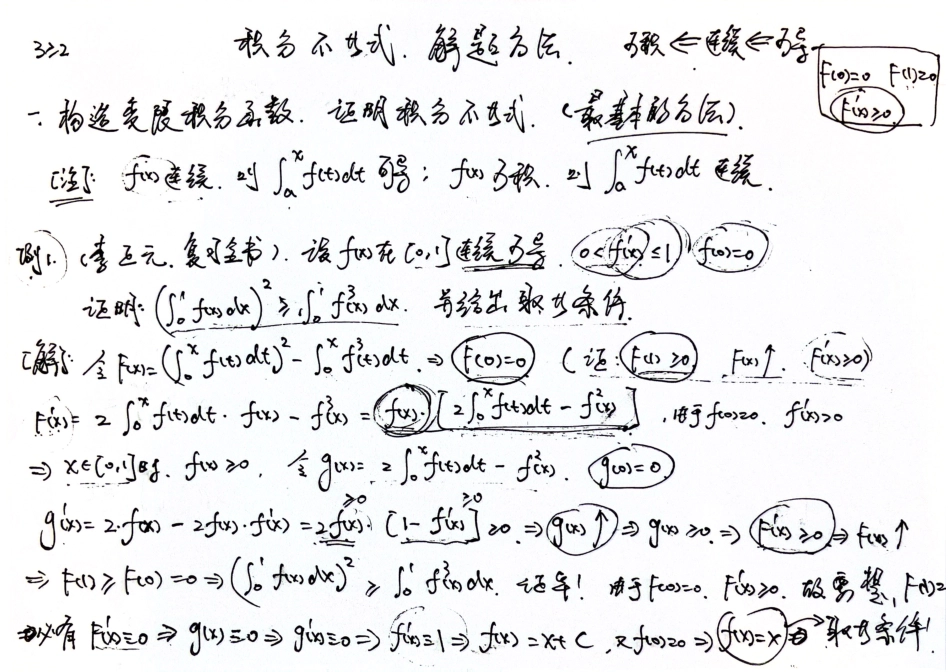 3≥2 积分不等式.解题方法. 可积⇐连续⇐可导
F(0)=0 F(1)≥0
F'(x)≥0
一.构造变限积分函数.证明积分不等式.(最基本的方法).
[注]: f(x)连续.则∫ₐˣf(t)dt可导; f(x)可积.则∫ₐˣf(t)dt连续.
例1.(李正元.复习全书).设f(x)在[0,1]连续可导. 0<f'(x)≤1 f(0)=0
证明:(∫₀¹f(x)dx)²≥∫₀¹f³(x)dx. 并给出取等条件.
[解]: 令F(x)=(∫₀ˣf(t)dt)²-∫₀ˣf³(t)dt.⇒F(0)=0 (证:F(1)≥0 F(x)↑. F'(x)≥0)
F'(x)=2∫₀ˣf(t)dt·f(x)-f³(x)=f(x)·[2∫₀ˣf(t)dt-f²(x)] ,由于f(0)=0. f'(x)>0
⇒x∈[0,1]时. f(x)≥0, 令g(x)=2∫₀ˣf(t)dt-f²(x). g(0)=0
≥0 ≥0
g'(x)=2·f(x)-2f(x)·f'(x)=2f(x)·[1-f'(x)]≥0.⇒g(x)↑⇒g(x)≥0.⇒F'(x)≥0⇒F(x)↑
⇒F(1)≥F(0)=0⇒(∫₀¹f(x)dx)²≥∫₀¹f³(x)dx. 证毕! 由于F(0)=0. F'(x)≥0. 故要想,F(1)=
⇒必有F'(x)≡0⇒g(x)≡0⇒g'(x)≡0⇒f'(x)≡1⇒f(x)=x+C,又f(0)=0⇒f(x)=x⇒取等条件!